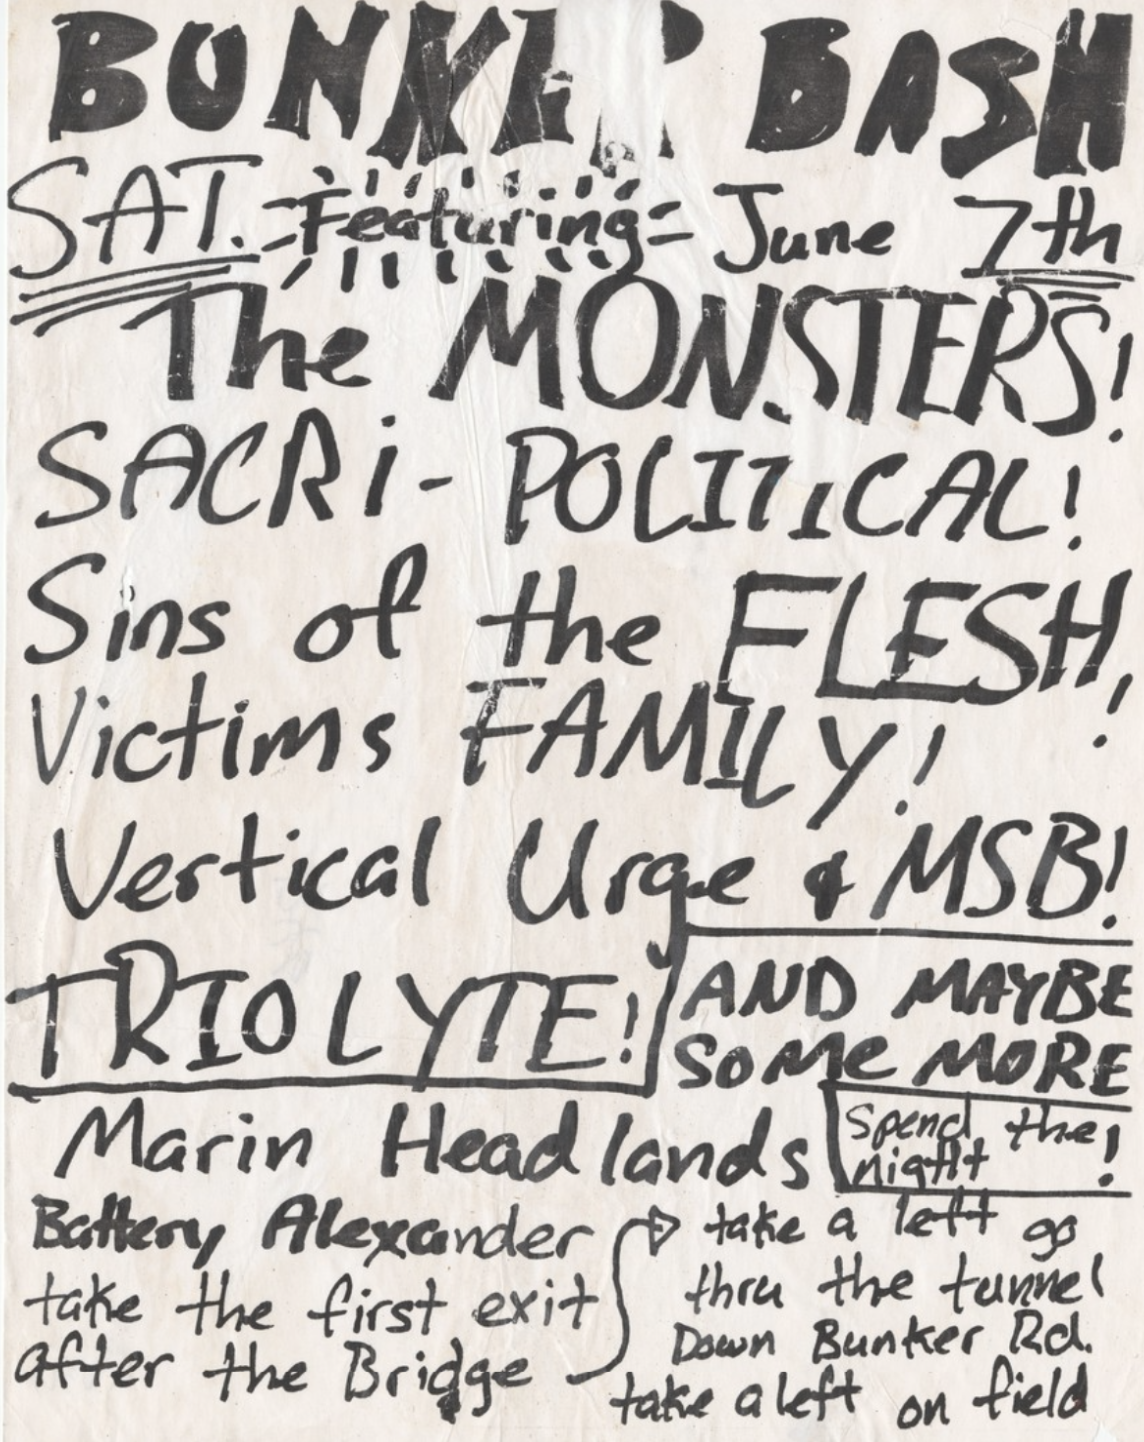 BUNKER BASH
SAT. Featuring June 7th
The MONSTERS!
SACRi-POLITICAL!
Sins of the FLESH,!
Victims FAMILY!
Vertical Urge & MSB!
TRIOLYTE!
AND MAYBE
SOME MORE
Marin Headlands
Spend the
night!
Battery Alexander
take the first exit
after the Bridge
take a left go
thru the tunnel
Down Bunker Rd.
take a left on field